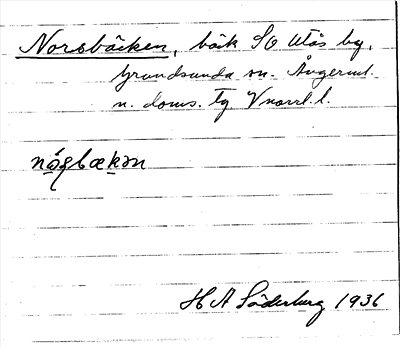 Norsbäcken, bäck SO Utås by,
Grundsunda sn. Ångerml.
n. doms. tg Vnorrl. l.
H A Söderberg 1936